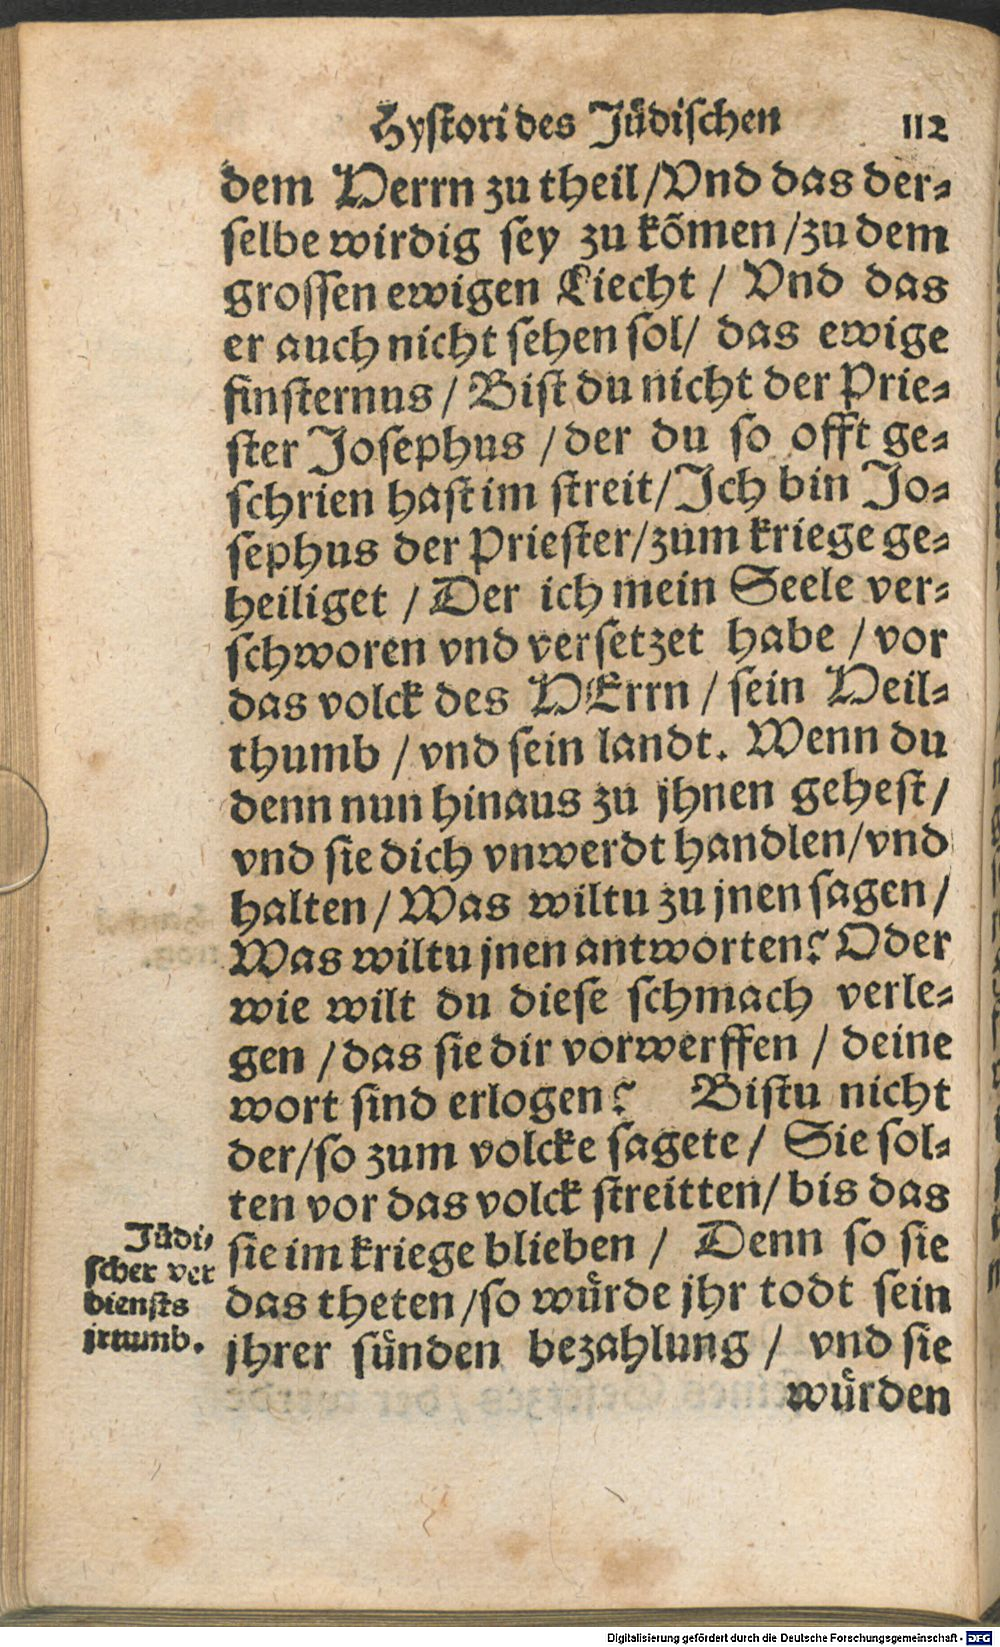 Hyſtori des Jüdiſchen 112
dem HErrn zu theil / Vnd das der⸗
ſelbe wirdig ſey zu kõmen / zu dem
groſſen ewigen Liecht / Vnd das
er auch nicht ſehen ſol / das ewige
finſternus / Biſt du nicht der Prie⸗
ſter Joſephus / der du ſo offt ge⸗
ſchrien haſt im ſtreit / Ich bin Jo⸗
ſephus der Prieſter / zum kriege ge⸗
heiliget / Der ich mein Seele ver⸗
ſchworen vnd verſetzet habe / vor
das volck des HErrn / ſein Heil⸗
thumb / vnd ſein landt. Wenn du
denn nun hinaus zu jhnen geheſt /
vnd ſie dich vnwerdt handlen / vnd
halten / Was wiltu zu jnen ſagen /
Was wiltu jnen antworten? Oder
wie wilt du dieſe ſchmach verle⸗
gen / das ſie dir vorwerffen / deine
wort ſind erlogen? Biſtu nicht
der / ſo zum volcke ſagete / Sie ſol⸗
ten vor das volck ſtreitten / bis das
Jüdi⸗
ſcher ver
dienſts
jrtumb.
ſie im kriege blieben / Denn ſo ſie
das theten / ſo wuͤrde jhr todt ſein
jhrer ſuͤnden bezahlung / vnd ſie
wuͤrden
Digitalisierung gefördert durch die Deutsche Forschungsgemeinschaft - DFG